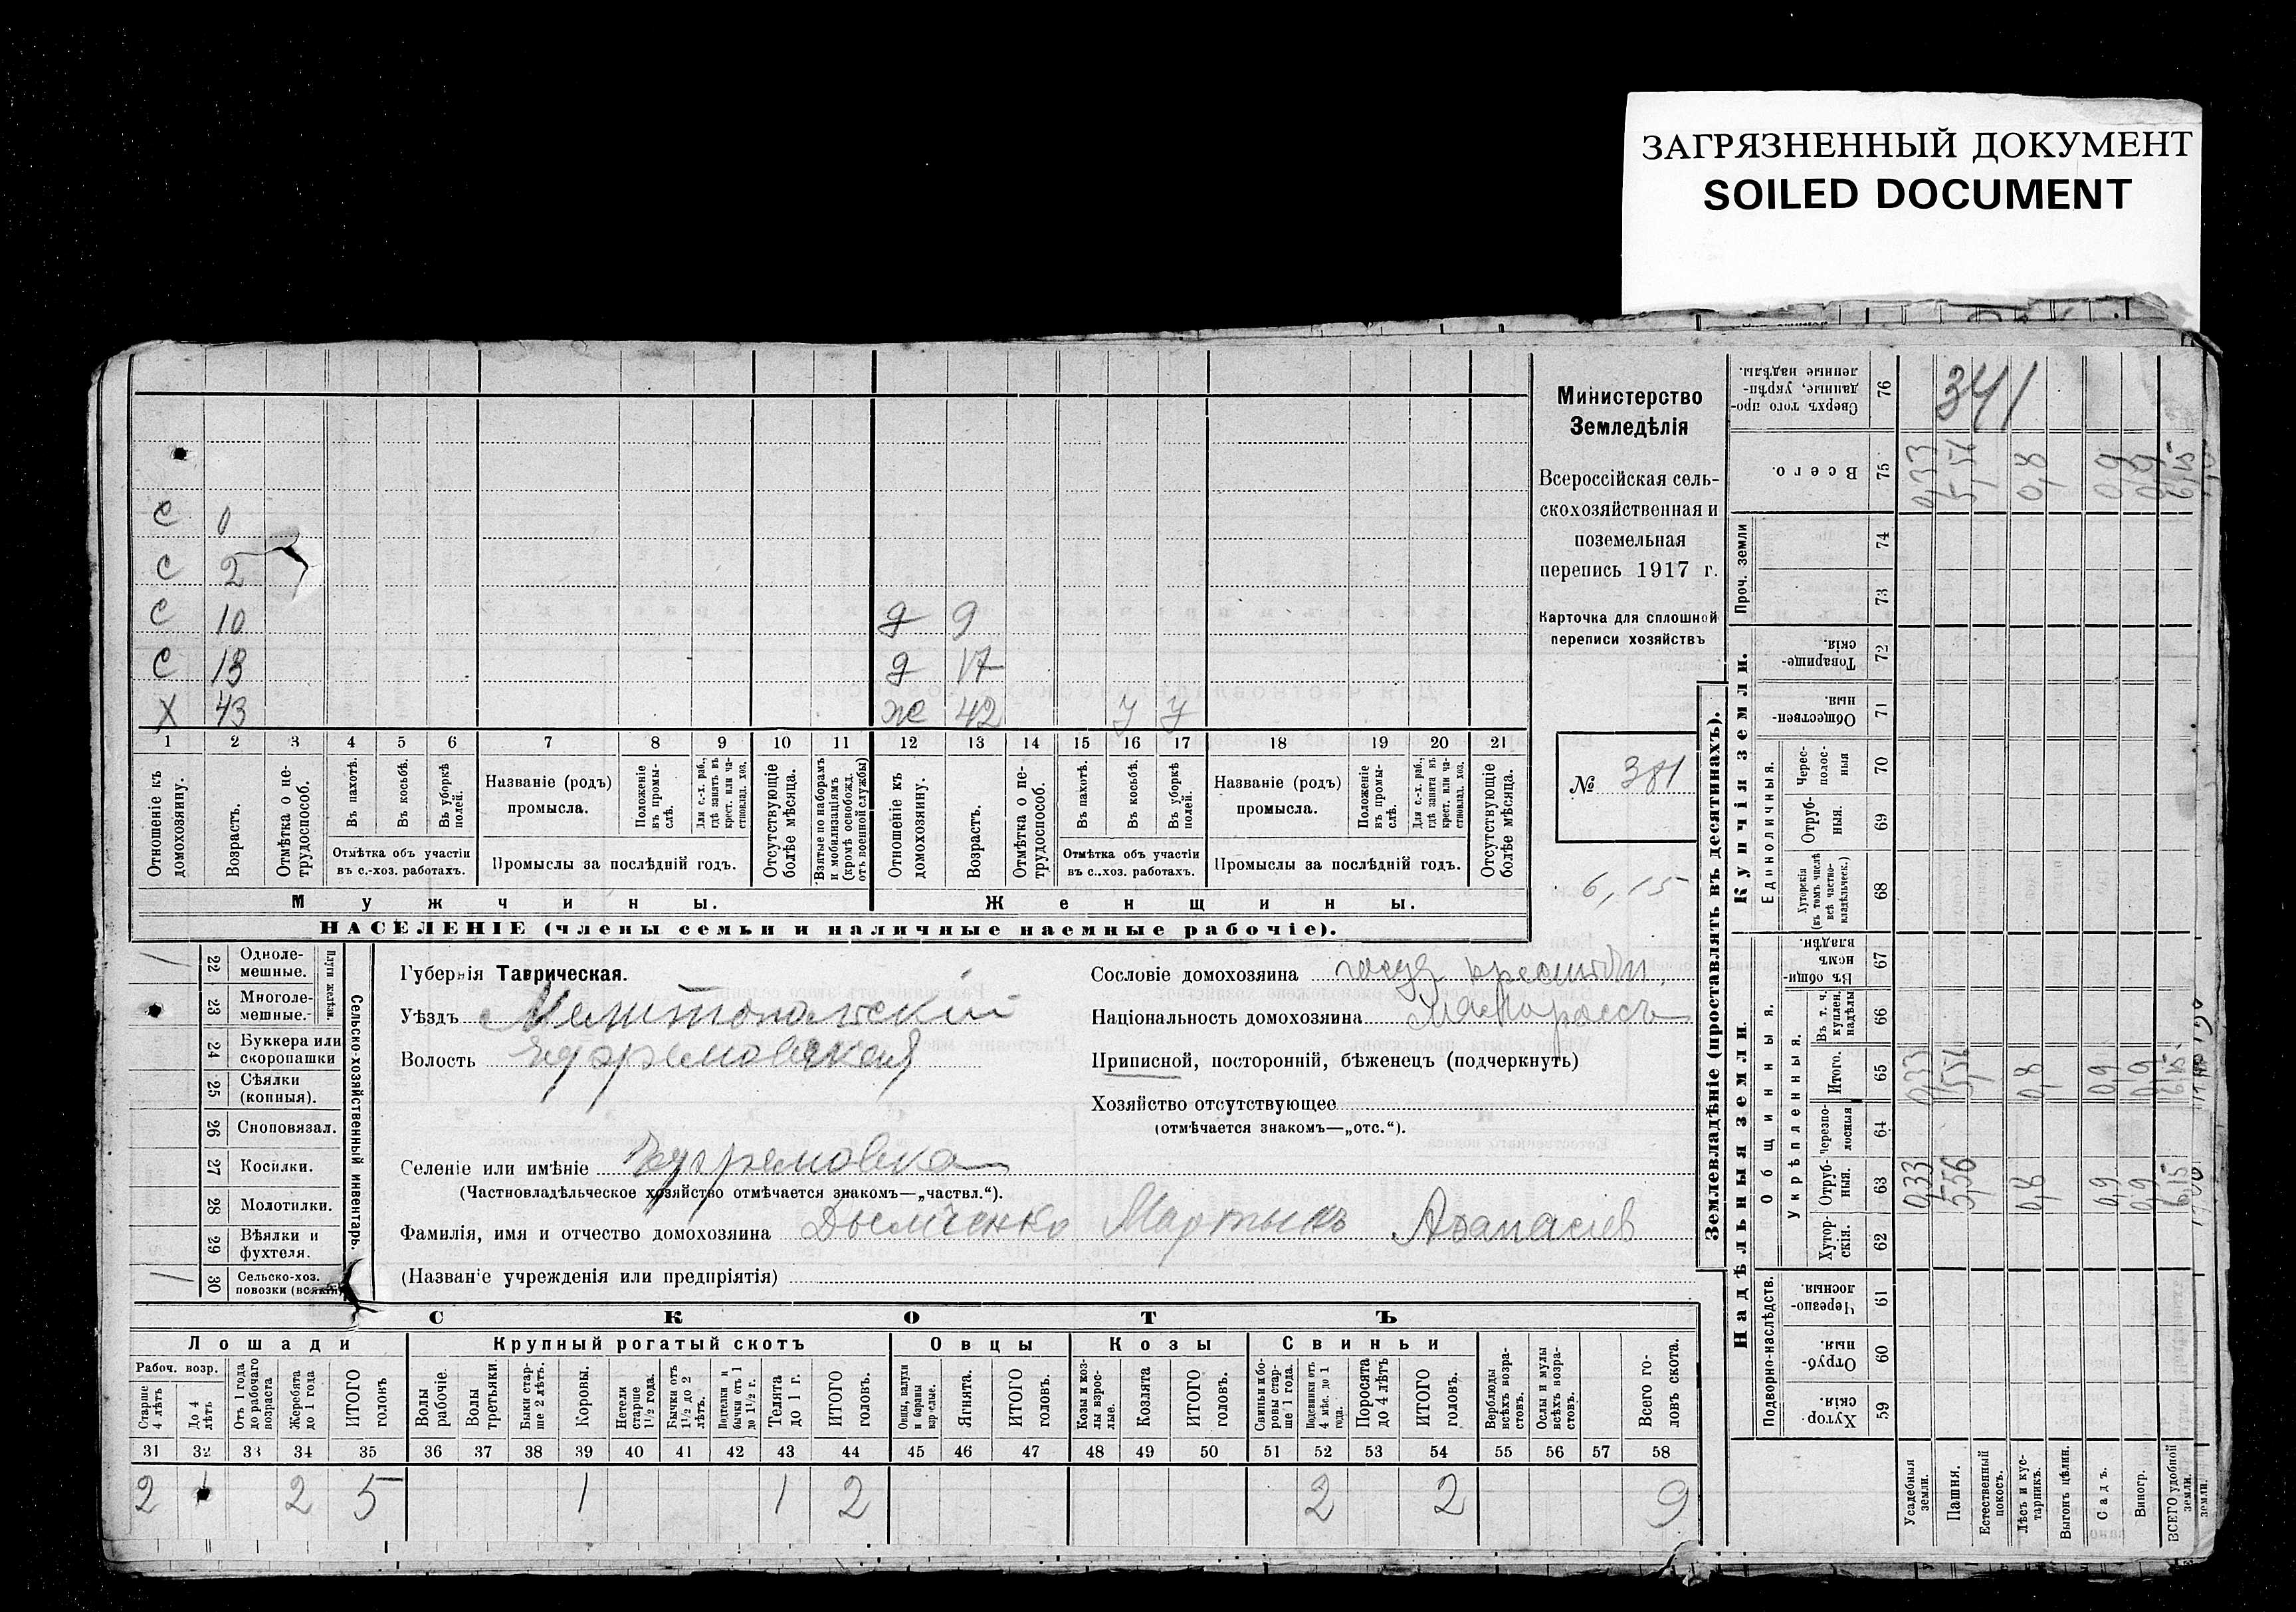 ЗАГРЯЗНЕННЫЙ ДОКУМЕНТ
SOILED DOCUMENT
С 0
С 2
С 10 д 9
С 13 д 17
Х 43 ж 42 у у
1 2 3 4 5 6 7 8 9 10 11 12 13 14 15 16 17 18 19 20 21
Отношеніе къ домохозяину.
Возрастъ.
Отмѣтка о не-трудоспособ.
Въ пахотѣ.
Въ косьбѣ.
Въ уборкѣ полей.
Отмѣтка объ участіи въ с.-хоз. работахъ.
Названіе (родъ) промысла.
Положеніе въ промы-слѣ.
Для с.-х. раб., гдѣ занятъ въ крест. или ча-стновлад. хоз.
Промыслы за послѣдній годъ.
Отсутствующіе болѣе мѣсяца.
Взятые по наборамъ и мобилизаціямъ (кромѣ освобожд. отъ военной службы)
Отношеніе къ домохозяину.
Возрастъ.
Отмѣтка о не-трудоспособ.
Въ пахотѣ.
Въ косьбѣ.
Въ уборкѣ полей.
Отмѣтка объ участіи въ с.-хоз. работахъ.
Названіе (родъ) промысла.
Положеніе въ промы-слѣ.
Для с.-х. раб., гдѣ занятъ въ крест. или ча-стновлад. хоз.
Промыслы за послѣдній годъ.
Отсутствующіе болѣе мѣсяца.
Мужчины. Женщины.
НАСЕЛЕНІЕ (члены семьи и наличные наемные рабочіе).
Министерство
Земледѣлія
Всероссійская сель-
скохозяйственная и
поземельная
перепись 1917 г.
Карточка для сплошной
переписи хозяйствъ
№ 381
6,15
22 Одноле-мешные.
23 Многоле-мешные.
Плуги желѣзн.
24 Буккера или скоропашки
25 Сѣялки (конныя).
26 Сноповязал.
27 Косилки.
28 Молотилки.
29 Вѣялки и фухтеля.
30 Сельско-хоз. повозки (всякія)
Сельско-хозяйственный инвентарь.
Губернія Таврическая.
Уѣздъ Мелитопольскій
Волость Ефремовская
Селеніе или имѣніе Ефремовка
(Частновладѣльческое хозяйство отмѣчается знакомъ—„частвл.“).
Фамилія, имя и отчество домохозяина Дымченко Мартынъ Афанасіев
(Названіе учрежденія или предпріятія)
Сословіе домохозяина госуд крестьян,
Національность домохозяина малороссъ
Приписной, посторонній, бѣженецъ (подчеркнуть)
Хозяйство отсутствующее
(отмѣчается знакомъ—„отс.“).
СКОТЪ
Лошади Крупный рогатый скотъ Овцы Козы Свиньи
Рабоч. возр.
Старше 4 лѣтъ
До 4 лѣтъ
Отъ 1 года до рабочаго возраста
Жеребята до 1 года
ИТОГО головъ
Волы рабочіе.
Волы третьяки.
Быки стар-ше 2 лѣтъ.
Коровы.
Нетели старше 1½ года.
Бычки отъ 1½ до 2 лѣтъ.
Подтелки и бычки отъ 1 до 1½ г.
Телята до 1 г.
ИТОГО головъ.
Овцы, валухи и бараны взрослые.
Ягнята.
ИТОГО головъ.
Козы и коз-лы взрос-лые.
Козлята
ИТОГО головъ.
Свиньи и бо-ровы стар-ше 1 года.
Подсвинки отъ 4 мѣс. до 1 года.
Поросята до 4 лѣтъ
ИТОГО головъ.
Верблюды всѣхъ возра-стовъ.
Ослы и мулы всѣхъ возра-стовъ.
Всего го-ловъ скота.
31 32 33 34 35 36 37 38 39 40 41 42 43 44 45 46 47 48 49 50 51 52 53 54 55 56 57 58
2 1 2 5 1 1 2 2 2 9
Землевладѣніе (проставлять въ десятинахъ).
Надѣльныя земли. Купчія земли.
Сверхъ того про-данные, укрѣп-ленные надѣлы. 76 341
Всего. 75 0,33 5,56 0,8 0,9 0,9 6,15
Проч. земли 74
73
Товарище-скія. 72
Обществен-ныя. 71
Единоличныя.
Черес-полос-ныя 70
Отруб-ныя. 69
Хуторскія (въ томъ числѣ всѣ частно-владѣльческ.) 68
Общинныя.
Въ общин-номъ владѣн. 67
Укрѣпленныя.
Въ т. ч. куплен. надѣлы 66
Итого. 65 0,33 5,56 0,8 0,9 0,9 6,15
черезпо-лосныя 64
Отруб-ныя. 63 0,33 5,56 0,8 0,9 0,9 6,15
Хутор-скія. 62
Подворно-наслѣдств.
Черезпо-лосныя. 61
Отруб-ныя. 60
Хутор-скія. 59
Усадебныя земли.
Пашня.
Естественный покосъ.
Лѣсъ и кус-тарникъ.
Выгонъ цѣлин.
Садъ.
Виногр.
ВСЕГО удобной земли.
земли.